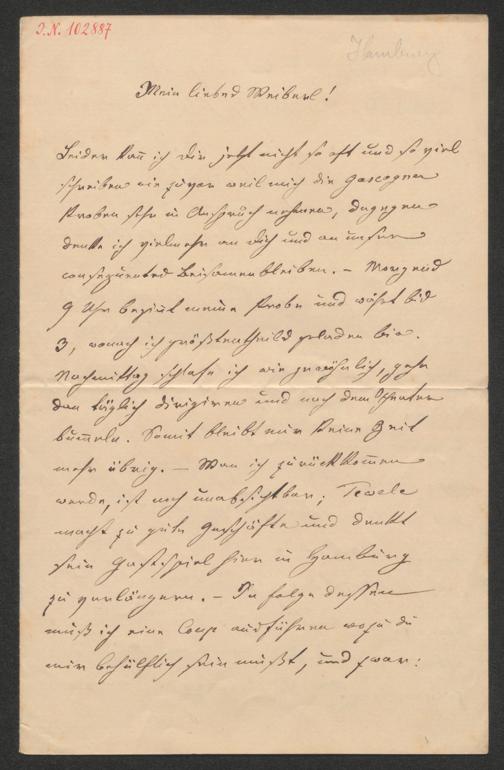 J.N. 102887
Hamburg
Mein liebes Weiberl!
Leider kan̄ ich dir jetzt nicht so oft und so viel
schreiben wie zuvor weil mich die Gascogner
Proben sehr in Anspruch nehmen, dagegen
denke ich vielmehr an dich und an unser
consequentes Beisamenbleiben. – Morgens
9 Uhr begin̄t meine Probe und währt bis
3, wonach ich größtentheils geladen bin.
Nachmittag schlafe ich wie gewöhnlich, gehe
dan̄ täglich dirigiren und nach dem Theater
bum̄eln. Somit bleibt mir keine Zeit
mehr übrig. – Wan̄ ich zurückkom̄en
werde, ist noch unabsichtbar; Tewele
macht zu gute Geschäfte und denkt
sein Gastspiel hier in Hamburg
zu verlängern. – In folge dessen
muß ich eine Coup ausführen wozu du
mir behülflich sein mußt, und zwar: